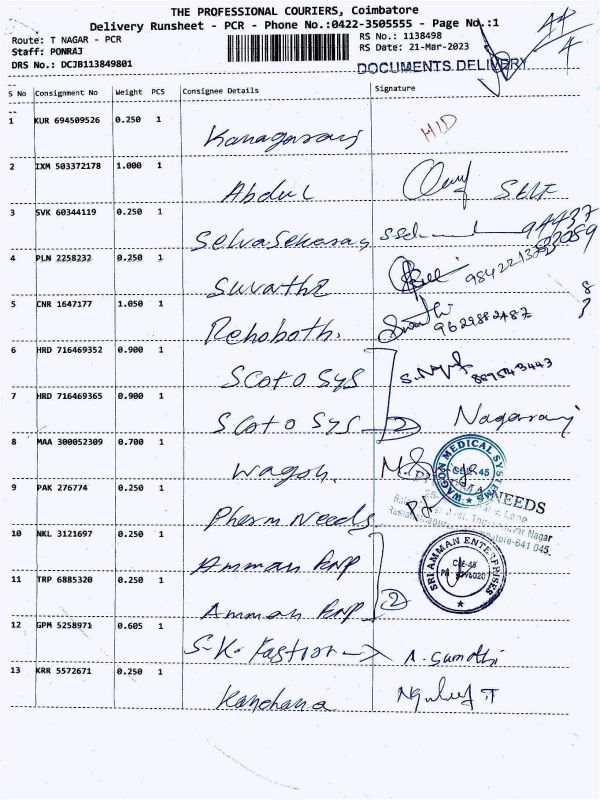 THE PROFESSIONAL COURIERS, Coimbatore
Delivery Runsheet - PCR - Phone No.:0422-3505555 - Page No.:1
Route: T NAGAR - PCR
Staff: PONRAJ
DRS No.: DCJB113849801
RS No.: 1138498
RS Date: 21-Mar-2023
DOCUMENTS DELIVERY
S No Consignment No Weight PCS Consignee Details Signature
1 KUR 694509526 0.250 1 Kanagaraj HID
2 IXM 503372178 1.000 1 Abdul Self
3 SVK 60344119 0.250 1 Selvasekaran 94437
4 PLN 2258232 0.250 1 Suvathi
5 CNR 1647177 1.050 1 Rehoboth. 9629882487
6 HRD 716469352 0.900 1 Scoto Sys
7 HRD 716469365 0.900 1 Scoto Sys 2 Nagaraj
8 MAA 300052309 0.700 1 Wagon.
WAGON MEDICAL SYSTEMS
9 PAK 276774 0.250 1 Pharm Needs
NEEDS
10 NKL 3121697 0.250 1 Amman Enp
11 TRP 6885320 0.250 1 Amman Enp 2
SRI AMMAN ENTERPRISES
12 GPM 5258971 0.605 1 S.K. Fashion A. Sumathi
13 KRR 5572671 0.250 1 Kanchana